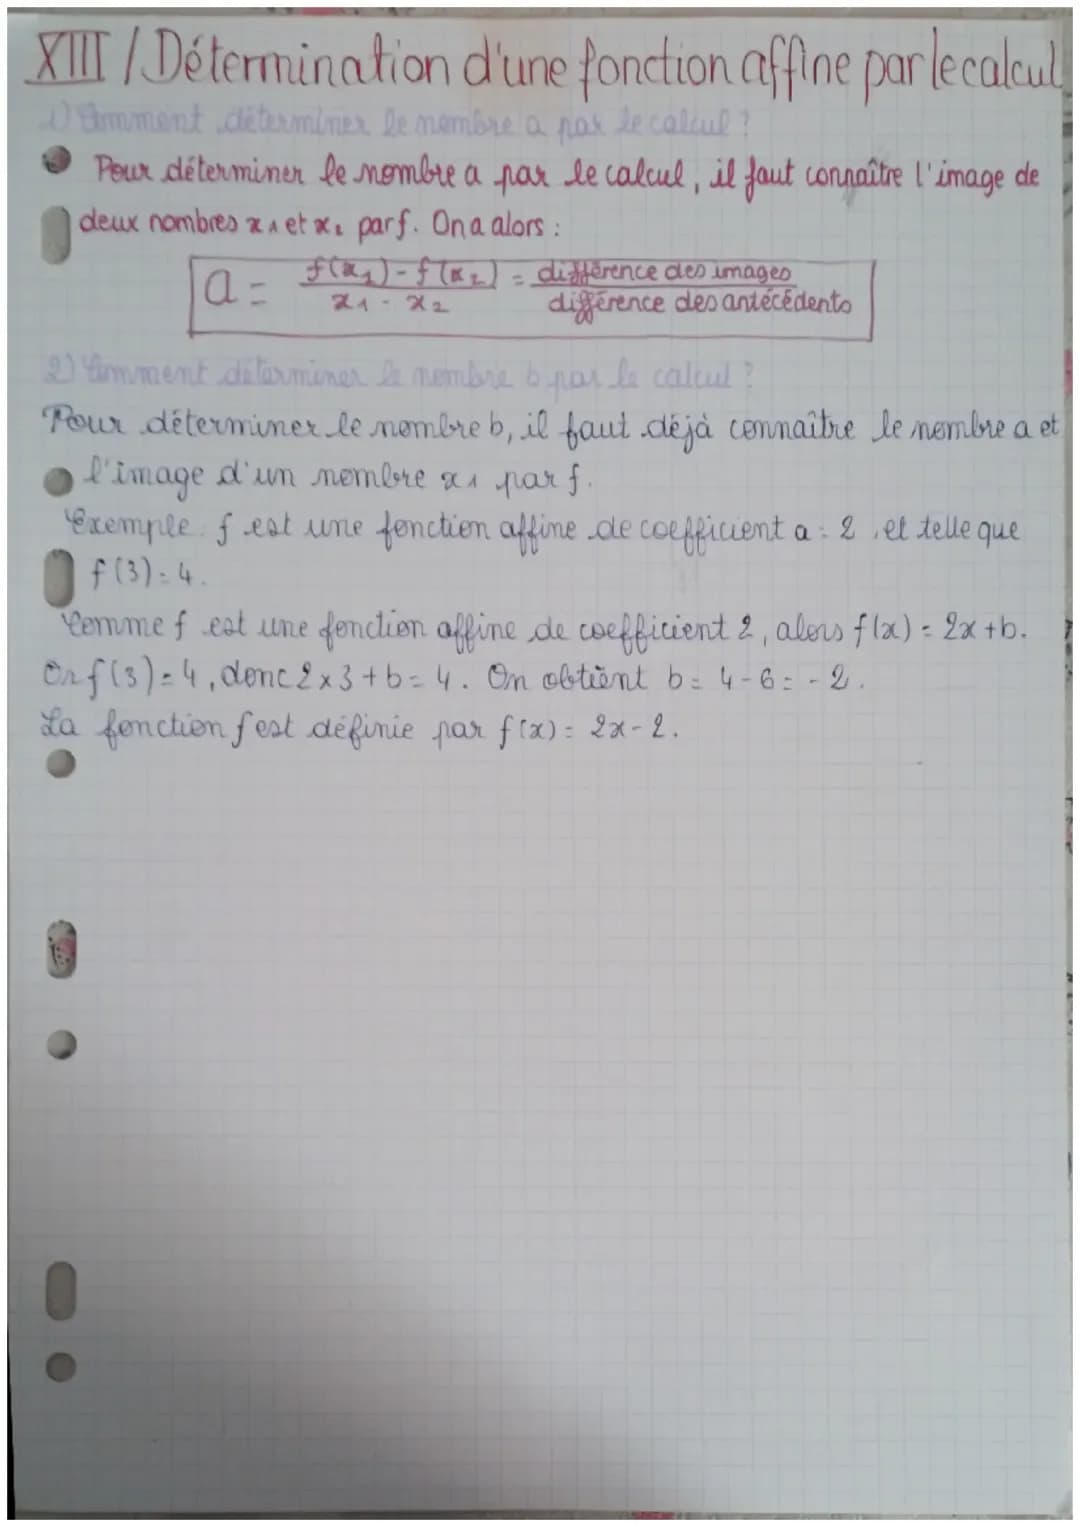 XIII / Détermination d'une fonction affine par le calcul
1) Comment déterminer le nombre a par le calcul ?
Pour déterminer le nombre a par le calcul, il faut connaître l'image de
deux nombres x₁ et x₂ par f. On a alors :
a = f(x₁) - f(x₂) / x₁ - x₂ = différence des images / différence des antécédents
2) Comment déterminer le nombre b par le calcul ?
Pour déterminer le nombre b, il faut déjà connaître le nombre a et
l'image d'un nombre x₁ par f.
Exemple : f est une fonction affine de coefficient a = 2, et telle que
f(3) = 4.
Comme f est une fonction affine de coefficient 2, alors f(x) = 2x + b.
Or f(3) = 4, donc 2 x 3 + b = 4. On obtient b = 4 - 6 = - 2.
La fonction f est définie par f(x) = 2x - 2.